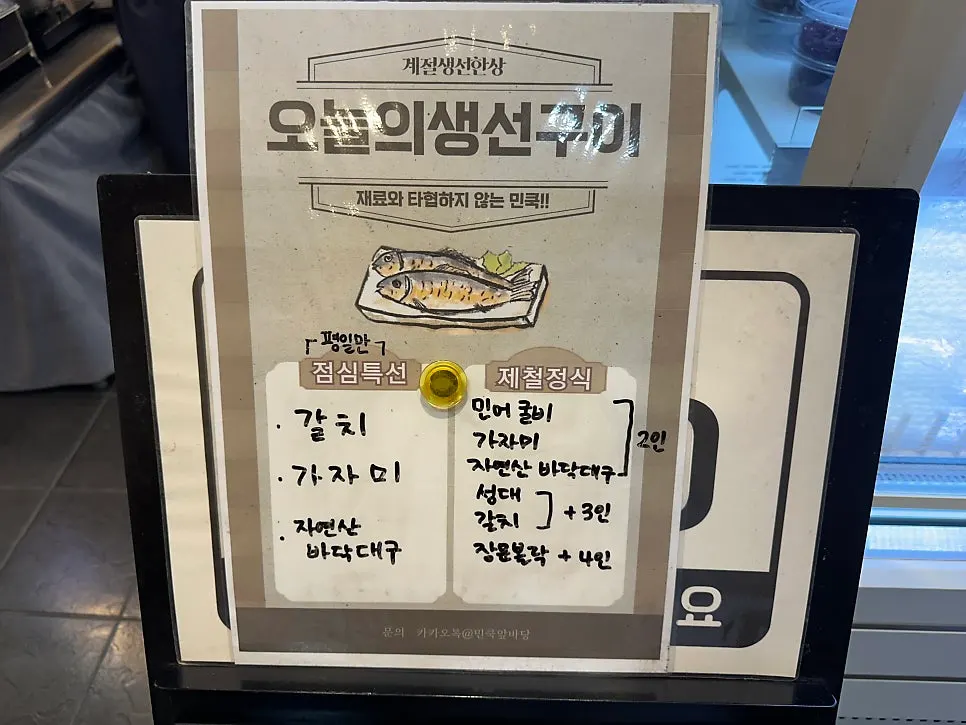 계절생선한상
오늘의생선구이
재료와 타협하지 않는 민쿡!!
「평일만」
점심특선
· 갈치
· 가자미
· 자연산
바닥대구
제철정식
민어 굴비
가자미
자연산 바닥대구
2인
성대
갈치
+3인
장문볼락 +4인
문의 카카오톡@민쿡앞바당
요